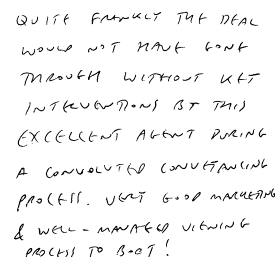 QUITE FRANKLY THE DEAL
WOULD NOT HAVE GONE
THROUGH WITHOUT KEY
INTERVENTIONS BY THIS
EXCELLENT AGENT DURING
A CONVOLUTED CONVEYANCING
PROCESS. VERY GOOD MARKETING
& WELL-MANAGED VIEWING
PROCESS TO BOOT!